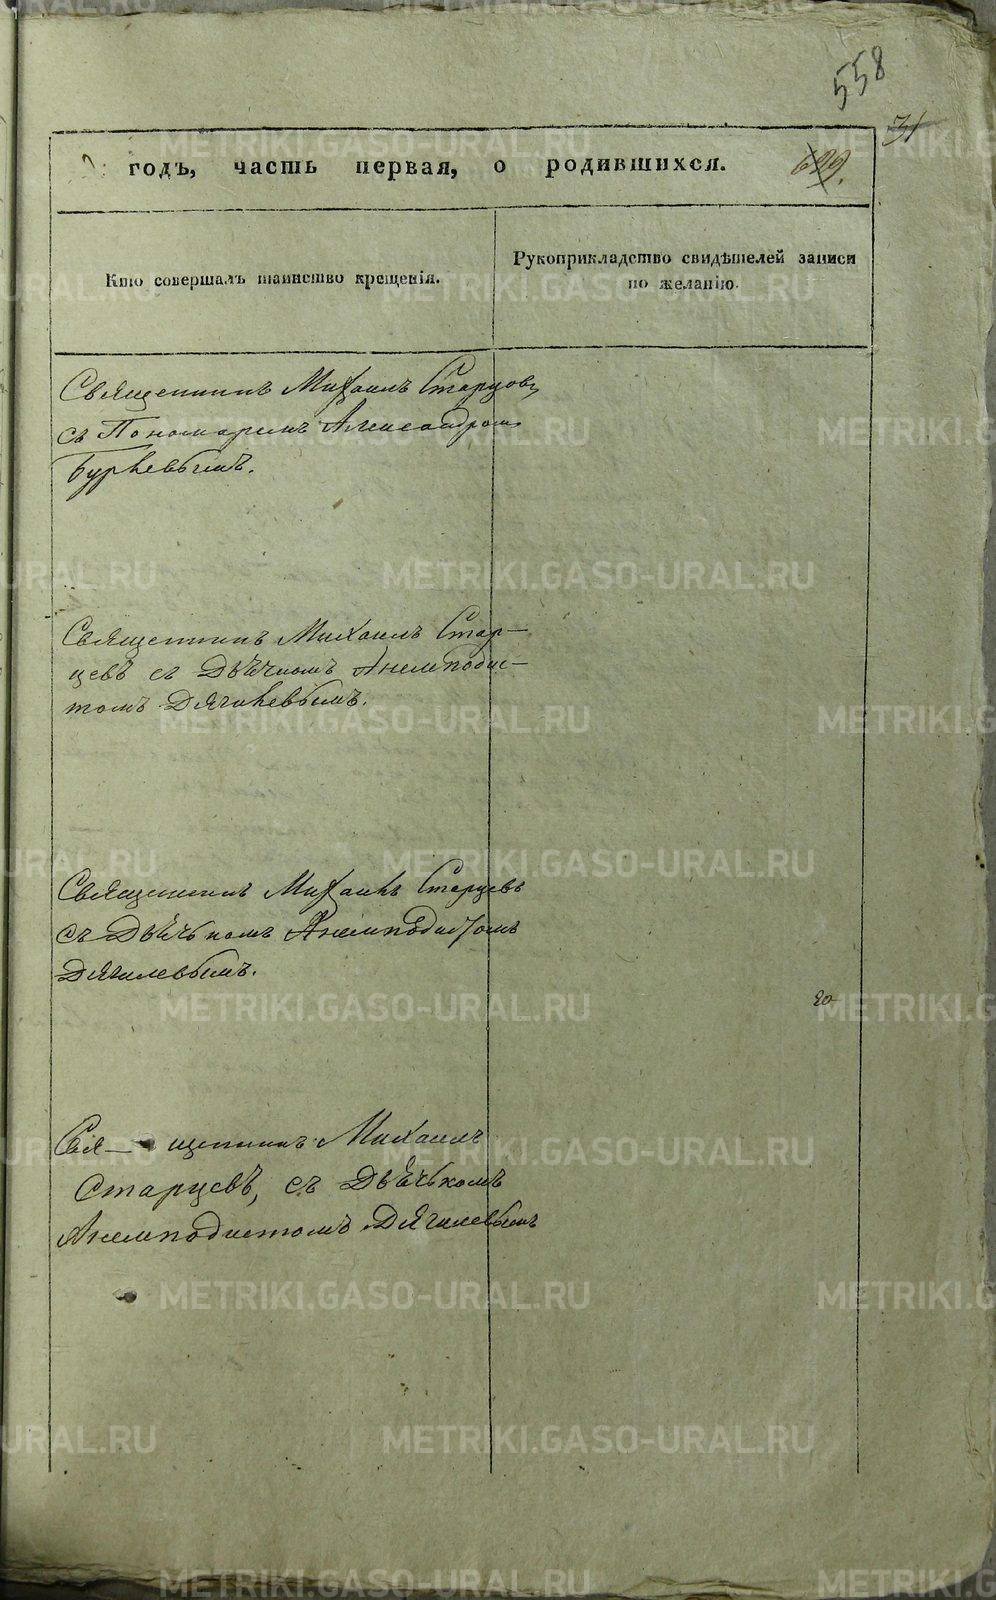 558
31
годъ, часть первая, о родившихся. 699.
Кто совершалъ таинство крещенія.
Рукоприкладство свидѣтелей записи
по желанію.
Священникъ Михаилъ Старцовъ,
съ Пономаремъ Александромъ
Священникъ Михаилъ Стар-
цевъ съ Дьячкомъ Анемподис-
томъ Дягилевымъ.
Священникъ Михаилъ Старцевъ
съ Дьячькомъ Анемподистомъ
Дягилевымъ.
Свя- щенникъ Михаилъ
Старцевъ, съ Дьячькомъ
Анемподистомъ Дягилевымъ
METRIKI.GASO-URAL.RU